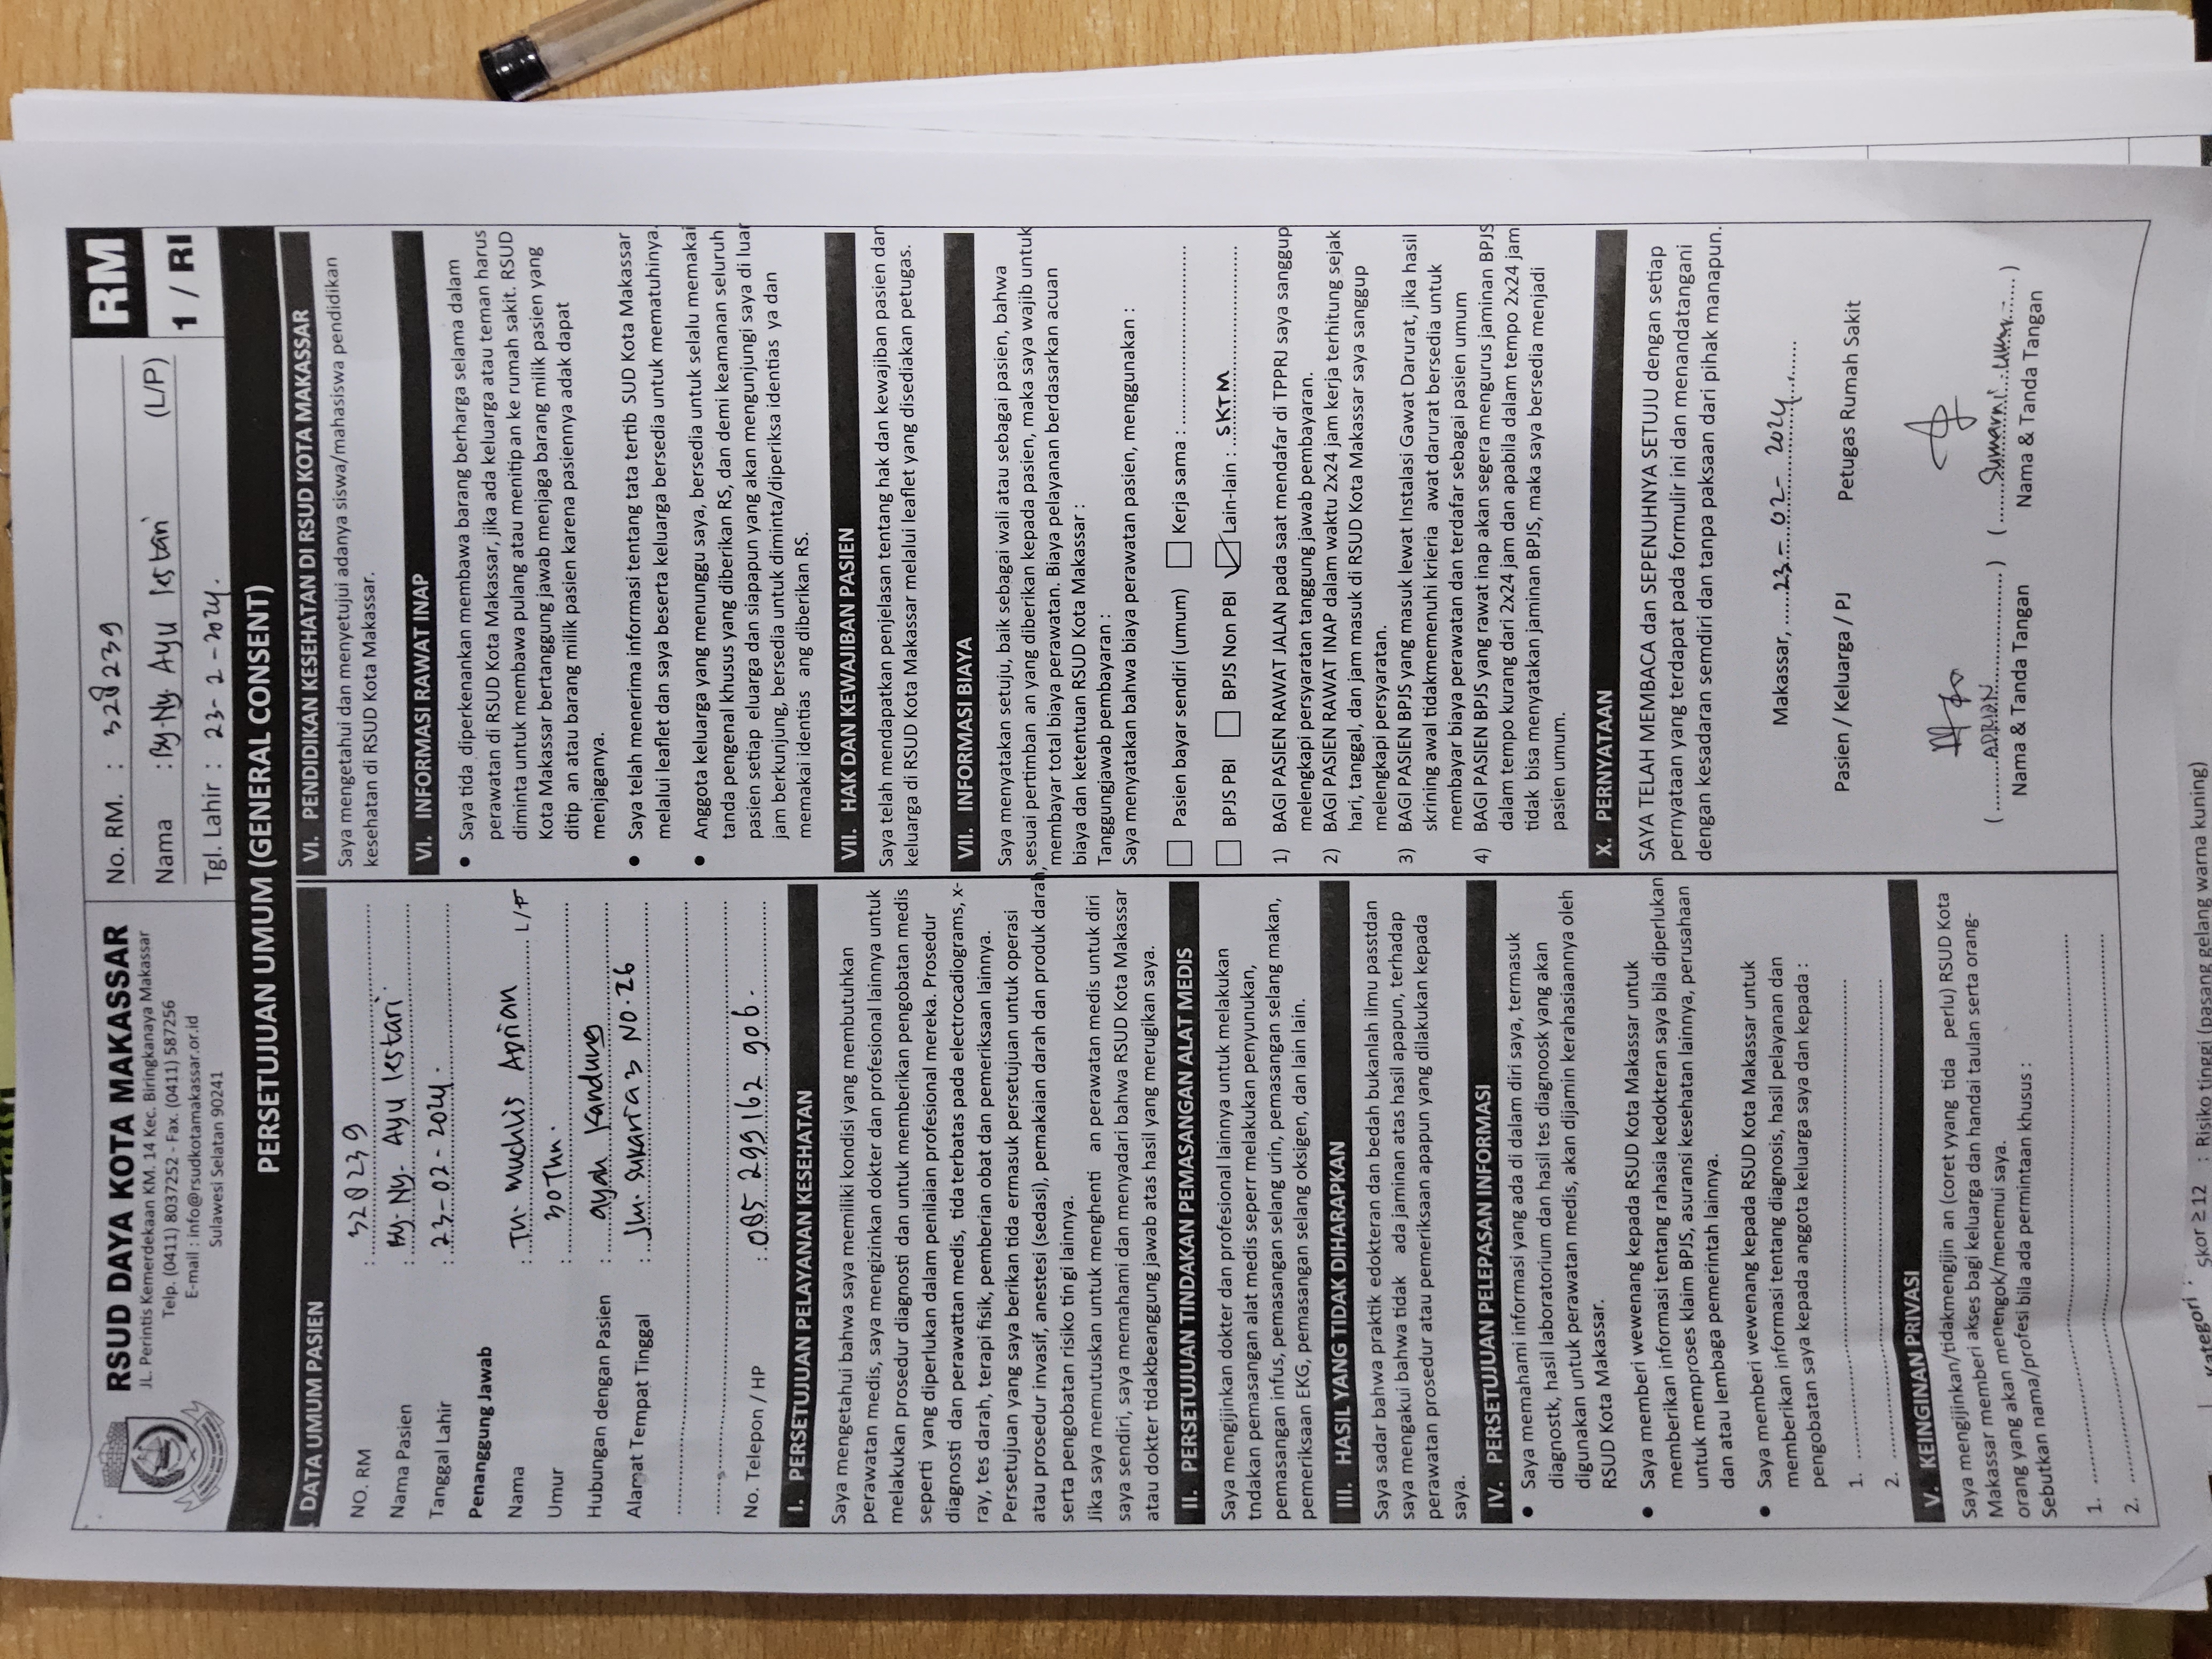 RSUD DAYA KOTA MAKASSAR
JL. Perintis Kemerdekaan KM. 14 Kec. Biringkanaya Makassar
Telp. (0411) 8037252 - Fax. (0411) 587256
E-mail : info@rsudkotamakassar.or.id
Sulawesi Selatan 90241
No. RM. : 328239
Nama : By. Ny. Ayu lestari (L/P)
Tgl. Lahir : 23- 2 - 2024.
RM
1 / RI
PERSETUJUAN UMUM (GENERAL CONSENT)
DATA UMUM PASIEN
NO. RM : 328239
Nama Pasien : By. Ny. Ayu lestari
Tanggal Lahir : 23-02-2024.
Penanggung Jawab
Nama : Tn. Muchlis Adrian L/P
Umur : 30 Thn.
Hubungan dengan Pasien : ayah kandung
Alamat Tempat Tinggal : Jln. Sukaria 3 NO. 26
No. Telepon / HP : 085 299 162 906.
I. PERSETUJUAN PELAYANAN KESEHATAN
Saya mengetahui bahwa saya memiliki kondisi yang membutuhkan
perawatan medis, saya mengizinkan dokter dan profesional lainnya untuk
melakukan prosedur diagnosti dan untuk memberikan pengobatan medis
seperti yang diperlukan dalam penilaian profesional mereka. Prosedur
diagnosti dan perawattan medis, tida terbatas pada electrocadiograms, x-
ray, tes darah, terapi fisik, pemberian obat dan pemeriksaan lainnya.
Persetujuan yang saya berikan tida ermasuk persetujuan untuk operasi
atau prosedur invasif, anestesi (sedasi), pemakaian darah dan produk darah,
serta pengobatan risiko tin gi lainnya.
Jika saya memutuskan untuk menghenti an perawatan medis untuk diri
saya sendiri, saya memahami dan menyadari bahwa RSUD Kota Makassar
atau dokter tidakbeanggung jawab atas hasil yang merugikan saya.
II. PERSETUJUAN TINDAKAN PEMASANGAN ALAT MEDIS
Saya mengijinkan dokter dan profesional lainnya untuk melakukan
tndakan pemasangan alat medis seperr melakukan penyunukan,
pemasangan infus, pemasangan selang urin, pemasangan selang makan,
pemeriksaan EKG, pemasangan selang oksigen, dan lain lain.
III. HASIL YANG TIDAK DIHARAPKAN
Saya sadar bahwa praktik edokteran dan bedah bukanlah ilmu passtdan
saya mengakui bahwa tidak ada jaminan atas hasil apapun, terhadap
perawatan prosedur atau pemeriksaan apapun yang dilakukan kepada
saya.
IV. PERSETUJUAN PELEPASAN INFORMASI
• Saya memahami informasi yang ada di dalam diri saya, termasuk
diagnostk, hasil laboratorium dan hasil tes diagnoosk yang akan
digunakan untuk perawatan medis, akan dijamin kerahasiaannya oleh
RSUD Kota Makassar.
• Saya memberi wewenang kepada RSUD Kota Makassar untuk
memberikan informasi tentang rahasia kedokteran saya bila diperlukan
untuk memproses klaim BPJS, asuransi kesehatan lainnya, perusahaan
dan atau lembaga pemerintah lainnya.
• Saya memberi wewenang kepada RSUD Kota Makassar untuk
memberikan informasi tentang diagnosis, hasil pelayanan dan
pengobatan saya kepada anggota keluarga saya dan kepada :
1.
2.
V. KEINGINAN PRIVASI
Saya mengijinkan/tidakmengijin an (coret yyang tida perlu) RSUD Kota
Makassar memberi akses bagi keluarga dan handai taulan serta orang-
orang yang akan menengok/menemui saya.
Sebutkan nama/profesi bila ada permintaan khusus :
1.
2.
VI. PENDIDIKAN KESEHATAN DI RSUD KOTA MAKASSAR
Saya mengetahui dan menyetujui adanya siswa/mahasiswa pendidikan
kesehatan di RSUD Kota Makassar.
VI. INFORMASI RAWAT INAP
• Saya tida diperkenankan membawa barang berharga selama dalam
perawatan di RSUD Kota Makassar, jika ada keluarga atau teman harus
diminta untuk membawa pulang atau menitip an ke rumah sakit. RSUD
Kota Makassar bertanggung jawab menjaga barang milik pasien yang
ditip an atau barang milik pasien karena pasiennya adak dapat
menjaganya.
• Saya telah menerima informasi tentang tata tertib SUD Kota Makassar
melalui leaflet dan saya beserta keluarga bersedia untuk mematuhinya.
• Anggota keluarga yang menunggu saya, bersedia untuk selalu memakai
tanda pengenal khusus yang diberikan RS, dan demi keamanan seluruh
pasien setiap eluarga dan siapapun yang akan mengunjungi saya di luar
jam berkunjung, bersedia untuk diminta/diperiksa identias ya dan
memakai identias ang diberikan RS.
VII. HAK DAN KEWAJIBAN PASIEN
Saya telah mendapatkan penjelasan tentang hak dan kewajiban pasien dan
keluarga di RSUD Kota Makassar melalui leaflet yang disediakan petugas.
VII. INFORMASI BIAYA
Saya menyatakan setuju, baik sebagai wali atau sebagai pasien, bahwa
sesuai pertimban an yang diberikan kepada pasien, maka saya wajib untuk
membayar total biaya perawatan. Biaya pelayanan berdasarkan acuan
biaya dan ketentuan RSUD Kota Makassar :
Tanggungjawab pembayaran :
Saya menyatakan bahwa biaya perawatan pasien, menggunakan :
Pasien bayar sendiri (umum) Kerja sama :
BPJS PBI BPJS Non PBI Lain-lain : SKTM
1) BAGI PASIEN RAWAT JALAN pada saat mendafar di TPPRJ saya sanggup
melengkapi persyaratan tanggung jawab pembayaran.
2) BAGI PASIEN RAWAT INAP dalam waktu 2x24 jam kerja terhitung sejak
hari, tanggal, dan jam masuk di RSUD Kota Makassar saya sanggup
melengkapi persyaratan.
3) BAGI PASIEN BPJS yang masuk lewat Instalasi Gawat Darurat, jika hasil
skrining awal tidakmemenuhi krieria awat darurat bersedia untuk
membayar biaya perawatan dan terdafar sebagai pasien umum
4) BAGI PASIEN BPJS yang rawat inap akan segera mengurus jaminan BPJS
dalam tempo kurang dari 2x24 jam dan apabila dalam tempo 2x24 jam
tidak bisa menyatakan jaminan BPJS, maka saya bersedia menjadi
pasien umum.
X. PERNYATAAN
SAYA TELAH MEMBACA dan SEPENUHNYA SETUJU dengan setiap
pernyataan yang terdapat pada formulir ini dan menandatangani
dengan kesadaran semdiri dan tanpa paksaan dari pihak manapun.
Makassar, 23 - 02 - 2024
Pasien / Keluarga / PJ Petugas Rumah Sakit
( ADRIAN ) ( Sumarni )
Nama & Tanda Tangan Nama & Tanda Tangan
Kategori : Skor ≥ 12 : Risiko tinggi (pasang gelang warna kuning)